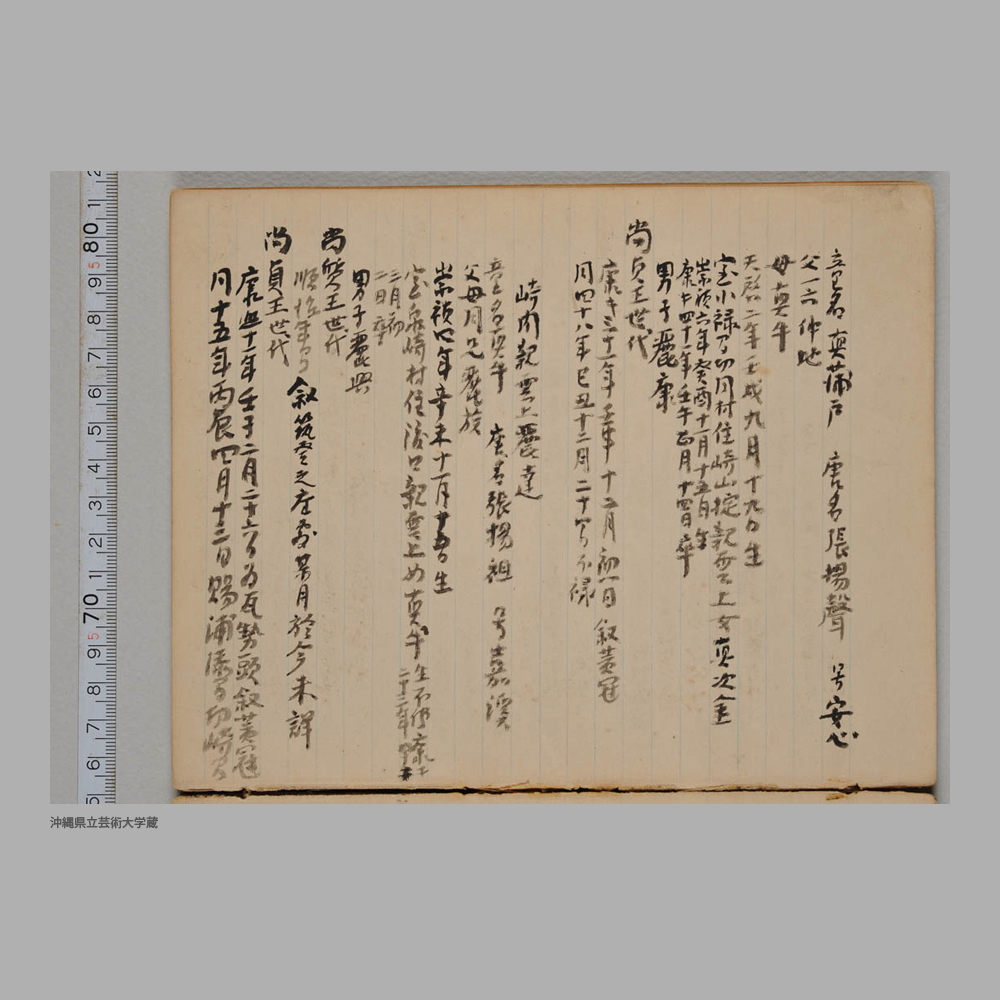 童名真蒲戸 唐名張揚聲 号安心
父六
母真牛
天啓二年壬戌九月十九日生
室小禄間切同村住崎山掟親雲上女真次金
崇禎六年癸酉十一月十五日生
康熙四十一年壬午正月十四日卒
男子麗康
尚貞王世代
康熙三十一年壬申十二月初一日叙黄冠
同四十八年己丑十二月二十 日不禄
崎間親雲上麗達
童名真牛 唐名張揚祖 号嘉渓
父母同兄麗
崇禎四年辛未十一月十五日生
室泉崎村住 口親雲上女真牛
生不 康熙
二十二年
三月初
二日卒
男子麗興
尚質王世代
順治年間叙筑登之座敷某月於今未詳
尚貞王世代
康熙十年壬子二月二十六日為瓦勢頭叙黄冠
同十五年丙辰四月十三日賜浦添間切崎間